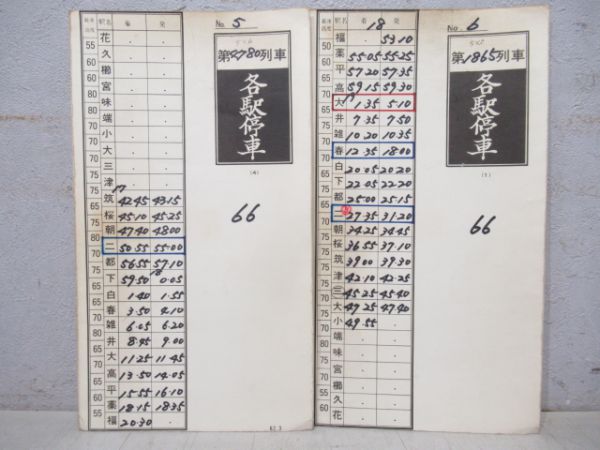 最高速度 駅名 着 発
花 . .
55 久 . .
櫛 . .
60 宮 . .
味 . .
70 端 . .
小 . .
70 大 . .
三 . .
津 . .
75 17
筑 42 45 43 15
75 桜 45 10 45 25
朝 47 40 48 00
80 二 50 55 55 00
70 都 56 55 57 10
65 下 59 50 18 0 05
65 白 1 40 1 55
65 春 3 50 4 10
雑 6 05 6 20
65 井 8 45 9 00
大 11 25 11 45
高 13 50 14 05
65 平 15 55 16 10
60 薬 18 15 18 35
55 福 20 30 .
No. 5
5×6
第2780列車
各駅停車
(4)
66
62.3
最高速度 駅名 着 発
18
福 . 53 10
50 薬 55 05 55 25
平 57 20 57 35
高 59 15 59 30
70 大 19 1 35 5 10
65 井 7 35 7 50
雑 10 20 10 35
春 12 35 18 00
70 白 20 05 20 20
下 22 05 22 20
都 25 00 25 15
二 27 35 31 20
70 朝 34 25 34 45
桜 36 55 37 10
65 筑 39 00 39 30
津 42 10 42 25
三 45 25 45 40
大 47 25 47 40
小 49 55 .
端 . .
味 . .
宮 . .
櫛 . .
久 . .
60 花 . .
No. 6
5×5
第1865列車
各駅停車
66